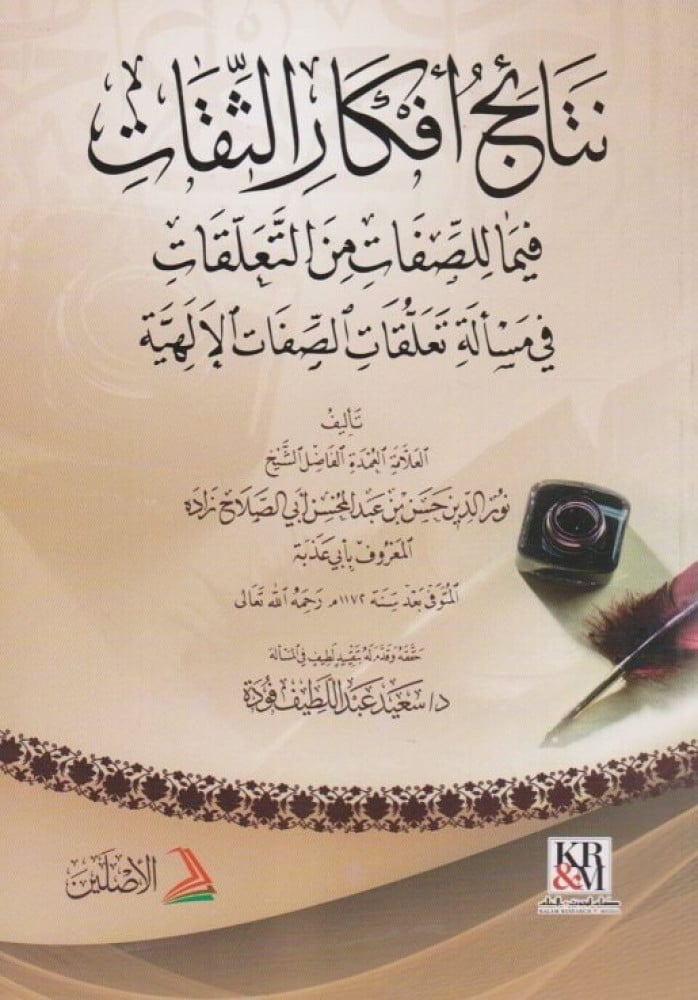 نَتَائِجُ أَفْكَارِ الثِّقَاتِ
فِيمَا لِلصِّفَاتِ مِنَ التَّعَلُّقَاتِ
فِي مَسْأَلَةِ تَعَلُّقَاتِ الصِّفَاتِ الإِلَهِيَّةِ
تأليف
العلامة العمدة الفاضل الشيخ
نور الدين حسن بن عبد المحسن أبي الصلاح زاده
المعروف بأبي عذبة
المتوفى بعد سنة ١١٧٢م رحمه الله تعالى
حققه وقدم له بتقييد لطيف في المسألة
د/ سعيد عبد اللطيف فودة
الأصلين
KR
&M
KALAM RESEARCH & MEDIA